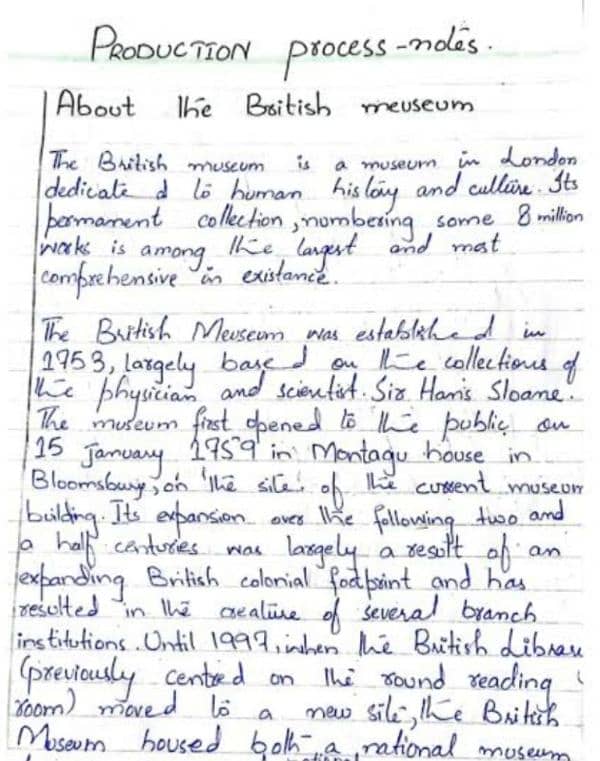 PRODUCTION process-notes.
About the British meuseum
The British museum is a museum in London
dedicate d to human histoy and cultüre. Its
permament collection, numbering some 8 million
works is among the largest and most
comprehensive in existance.
The British Meuseum was established in
1753, largely based on the collections of
the physician and scientist. Sir Hans Sloane.
The museum first opened to the public on
15 January 1759 in Montagu house in
Bloomsbury, on the site. of the current museum
building. Its expansion over the following two and
a half centuries was largely a result of an
expanding British colonial footprint and has
resulted in the creatiue of several branch
institutions. Until 1997, when the British Librar
(previously centred on the round reading
room) moved to a new site, the British
Museum housed both a national museum